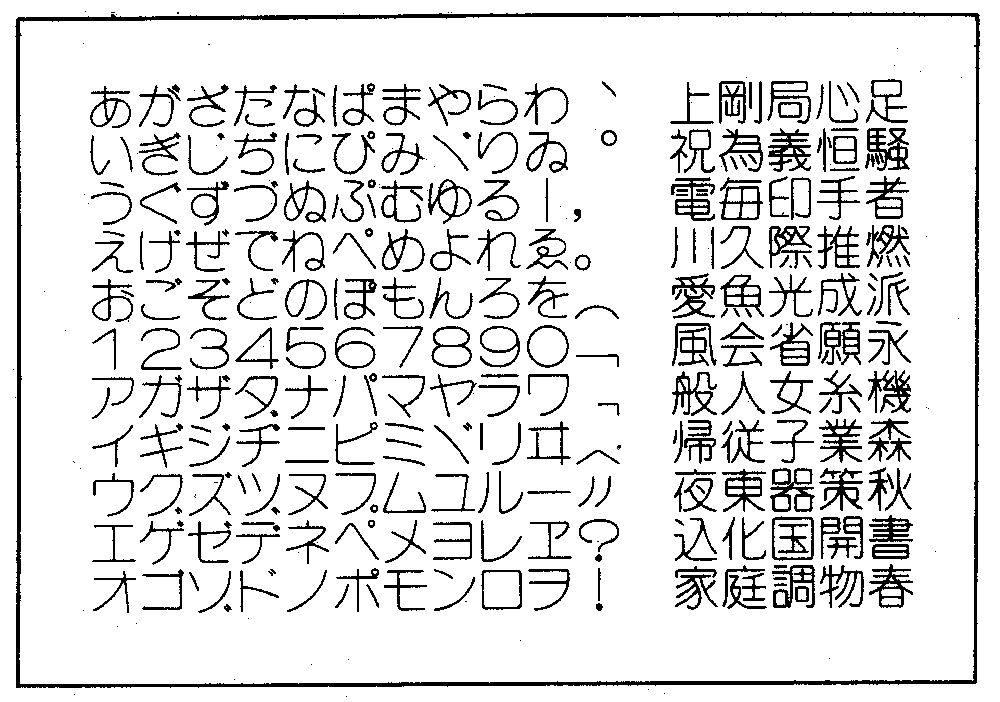 あがざだなぱまやらわ、 上剛局心足
いぎじぢにぴみゞりゐ゜ 祝為義恒騒
うぐずづぬぷむゆる｜, 電毎印手者
えげぜでねぺめよれゑ。 川久際推燃
おごぞどのぽもんろを︵ 愛魚光成派
1234567890﹁ 風会省願永
アガザダナパマヤラワ﹁ 般人女糸機
イギジヂニピミヾリヰヘ 帰従子業森
ウグズヅヌプムユルー〃 夜東器策秋
エゲゼデネペメヨレヱ？ 込化国開書
オゴゾドノポモンロヲ！ 家庭調物春